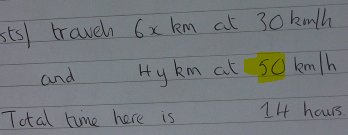 sts) travels 6x km at 30 km/h
and 4y km at 50 km/h
Total time here is 14 hours